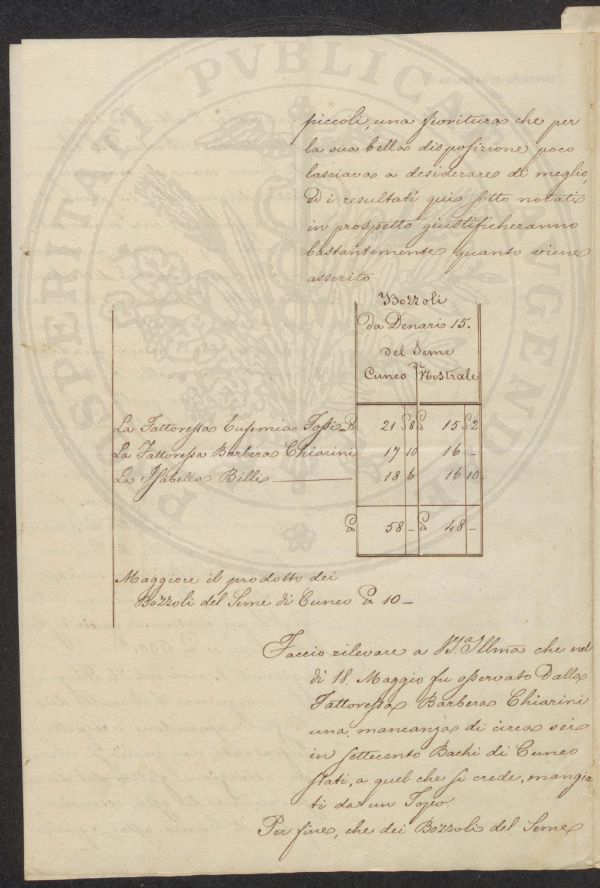 PROSPERITATI PVBLICAE AVGENDAE
piccoli, una fioritura che per
la sua bella disposizione poco
lasciava a desiderare di meglio,
Ed i resultati quì sotto notati
in prospetto giustificheranno
bastantemente quanto viene
asserito
Bozzoli
da Denari 15.
del Seme
Cuneo Nostrale
La Fattoressa Eufemia Fossi 21 8 15 2
La Fattoressa Barbera Chiarini 17 10 16 –
La Isabella Billi 18 6 16 10
58 – 48 –
Maggiore il prodotto dei
Bozzoli del Seme di Cuneo 10 –
Faccio rilevare a VS. Illma che nel
di 18. Maggio fu osservato dalla
Fattoressa Barbera Chiarini
una mancanza di circa sei
in settecento Bachi di Cuneo
stati, a quel che si crede, mangia
ti da un Topo.
Per fine, che dei Bozzoli del Seme